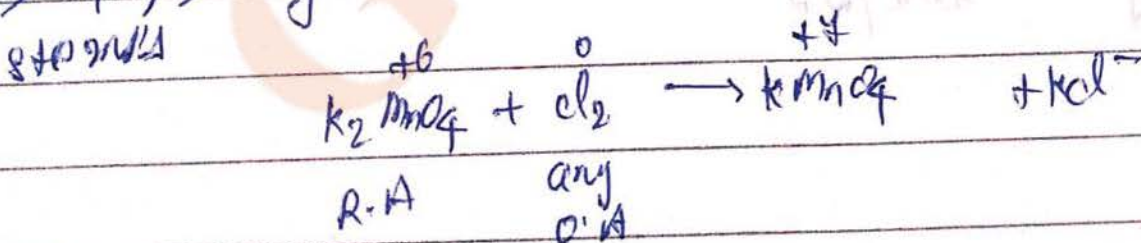 +6 0 +7
K₂MnO₄ + Cl₂ ⟶ KMnO₄ + KCl⁻
R.A any
O.A